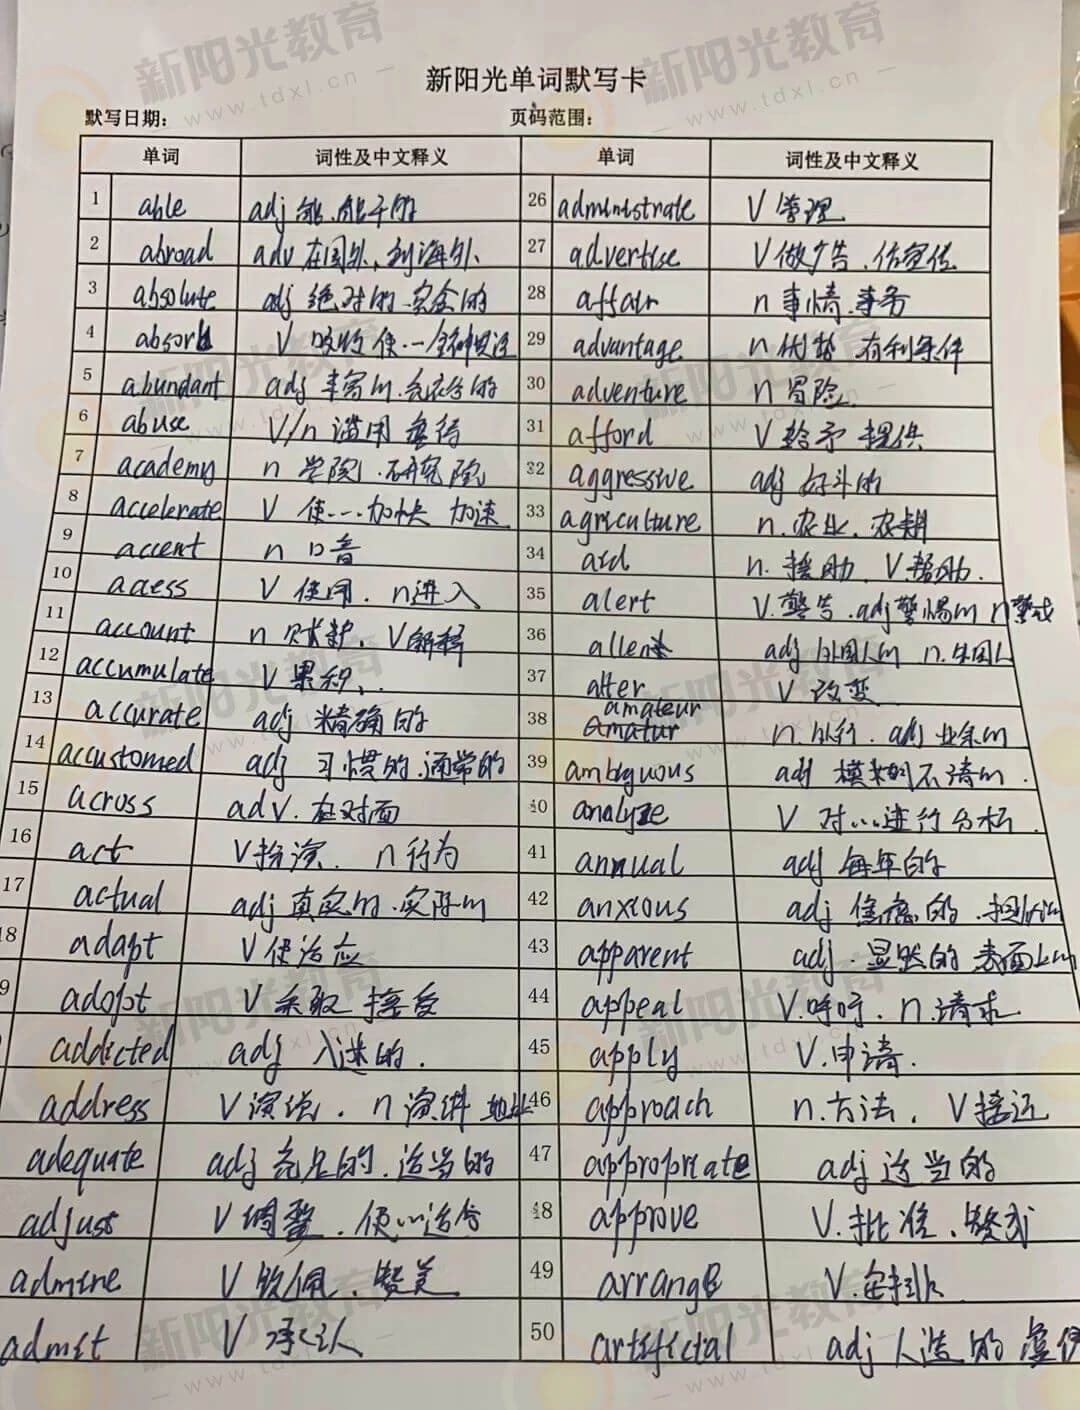 新阳光单词默写卡
默写日期: 页码范围:
单词 词性及中文释义 单词 词性及中文释义
1 able adj 能.能干的 26 administrate V 管理
2 abroad adv 在国外、到海外、 27 advertise V 做广告.作宣传
3 absolute adj 绝对的.完全的 28 affair n 事情.事务
4 absorb V 吸收 使…全神贯注 29 advantage n 优势 有利条件
5 abundant adj 丰富的.充裕的 30 adventure n 冒险.
6 abuse V/n 滥用 虐待 31 afford V 给予 提供
7 academy n 学院.研究院 32 aggressive adj 好斗的
8 accelerate V 使…加快 加速 33 agriculture n.农业.农耕
9 accent n 口音 34 aid n.援助.V帮助.
10 acess V 使用.n进入 35 alert V.警告.adj警惕的 n警戒
11 account n 账护.V解释 36 allent adj 外国人的 n.外国人
12 accumulate V 累积、. 37 alter V 改变
13 accurate adj 精确的 38 amateur n.外行.adj 业余的
14 accustomed adj 习惯的.通常的 39 ambiguous adj 模棱的不清的.
15 across adv.在对面 40 analyze V 对…进行分析.
16 act V扮演.n行为 41 annual adj 每年的
17 actual adj真实的.实际的 42 anxious adj 焦虑的.担心的
18 adapt V使适应 43 apparent adj.显然的 表面上的
9 adopt V采取 接受 44 appeal V.呼吁.n.请求
addicted adj 入迷的. 45 apply V.申请.
address V演说.n演讲 地址 46 approach n.方法.V接近
adequate adj充足的.适当的 47 appropriate adj适当的
adjust V调整.使…适合 48 approve V.批准.赞成
admire V 钦佩.赞美 49 arrange V.安排
admit V 承认 50 artificial adj 人造的 虚伪
新阳光教育
www.tdxl.cn